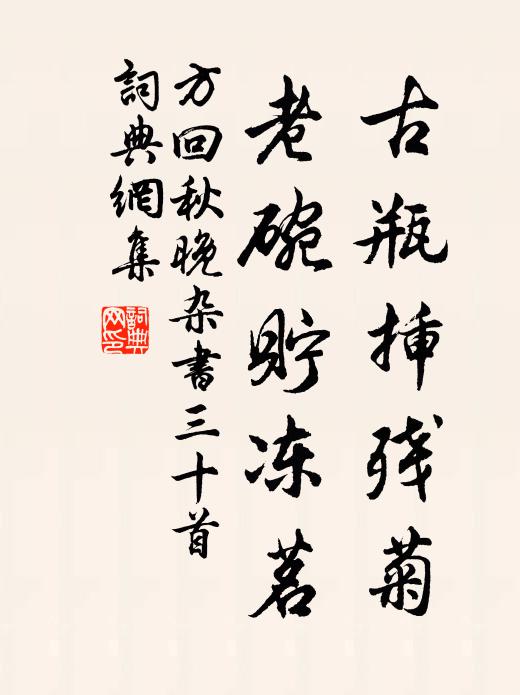 古瓶挿残菊
老碗貯冻茗
方回秋晚杂書三十首
詞典網集
詞典网印